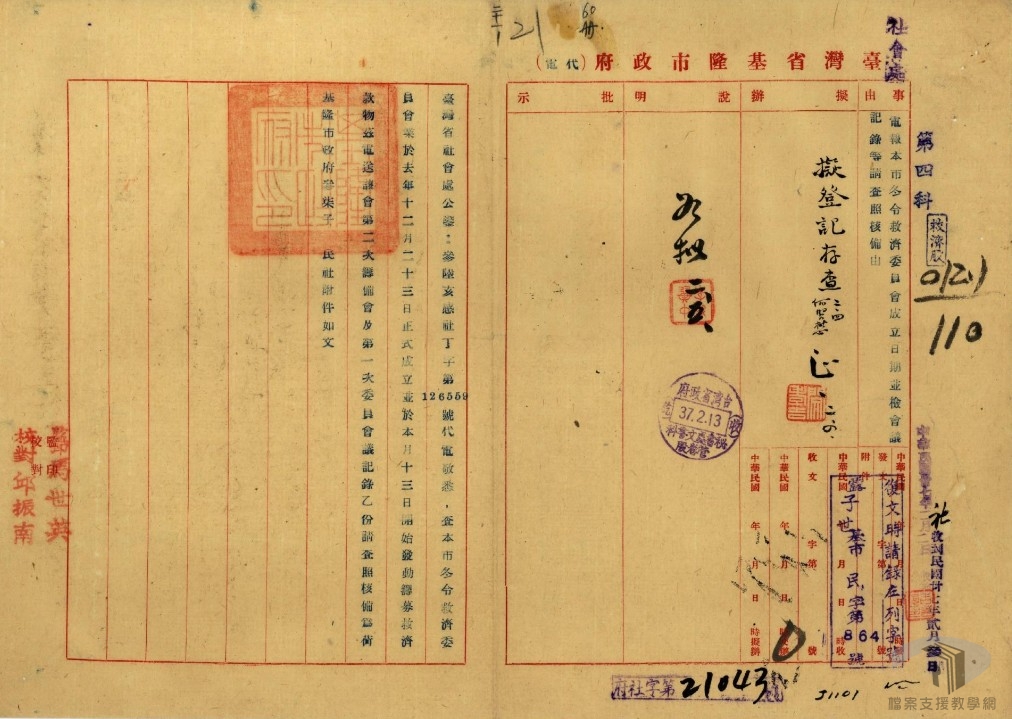 60冊
21
社會處
臺灣省基隆市政府（代電）
事由
擬辦
說明
批示
電報本市冬令救濟委員會成立日期並檢會議
記錄等請查照核備由
第四科
救濟股
0121
110
擬登記存查
二四
二六
如擬
二五
台灣省政府
37.2.13
收文
中華民國 年 月 日 時擬辦
中華民國 年 月 日
收文 字第 號
中華民國 年 月 日 時收
附件
發文 字第 號
中華民國 年 月 日
復文時請錄左列字號
基市民字第864號
社收到民國卅七年貳月
府社字第21043
J1101
臺灣省社會處公鑒：參陸亥感社丁字第126559號代電敬悉，查本市冬令救濟委
員會業於去年十二月二十三日正式成立並於本月十三日開始發動籌募救濟
款物茲電送該會第二次籌備會及第一次委員會議記錄乙份請查照核備為荷
基隆市政府 子 民社附件如文
監印
校對
校對邱振南
檔案支援教學網